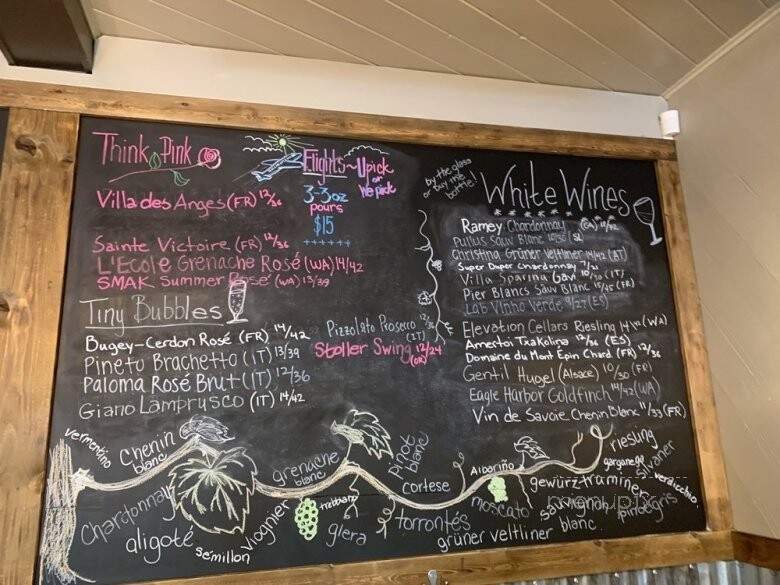 Think Pink
Villa des Anges (FR) 12/36
Sainte Victoire (FR) 12/36
L'Ecole Grenache Rosé (WA) 14/42
SMAK Summer Rosé (WA) 13/39
Flights~U pick
or
We pick
3-3oz
pours
$15
Tiny Bubbles
Bugey-Cerdon Rosé (FR) 14/42
Pineto Brachetto (IT) 13/39
Paloma Rosé Brut (IT) 12/36
Giano Lamprusco (IT) 14/42
Pizzolato Prosecco
(IT)
Stoller Swing 12/24
(OR)
by the glass
or buy the
bottle!
White Wines
Ramey Chardonnay (CA)
Pullus Sauv Blanc
Christina Grüner Veltliner 14/42 (AT)
Super Duper Chardonnay
Villa Sparina Gavi 10/30 (IT)
Pier Blancs Sauv Blanc 15/45 (FR)
Lab Vinho Verde 9/27 (ES)
Elevation Cellars Riesling (WA)
Amestoi Txakolina 12/36 (ES)
Domaine du Mont Epin Chard (FR) 12/36
Gentil Hugel (Alsace) 10/30 (FR)
Eagle Harbor Goldfinch 14/42 (WA)
Vin de Savoie Chenin Blanc 11/33 (FR)
vermentino
Chenin
blanc
grenache
blanc
pinot
blanc
Albariño
riesling
garganega
sylvaner
verdicchio
Chardonnay
aligoté
semillon
viognier
trebbiano
glera
cortese
torrontés
moscato
gewürztraminer
sauvignon
blanc
pinot gris
grüner veltliner